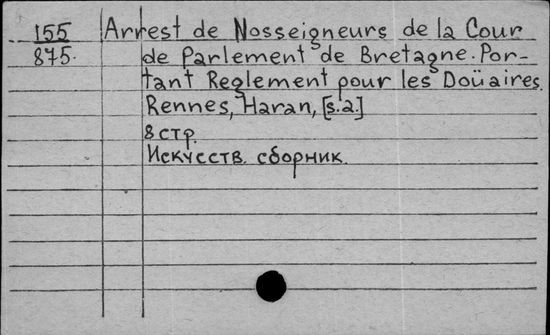 155 Arrest de Nosseigneurs de la Cour
875. de Parlement de Bretagne. Por-
tant Reglement pour les Doüaires.
Rennes, Haran, [s.a.]
8 стр.
Искусств. сборник.